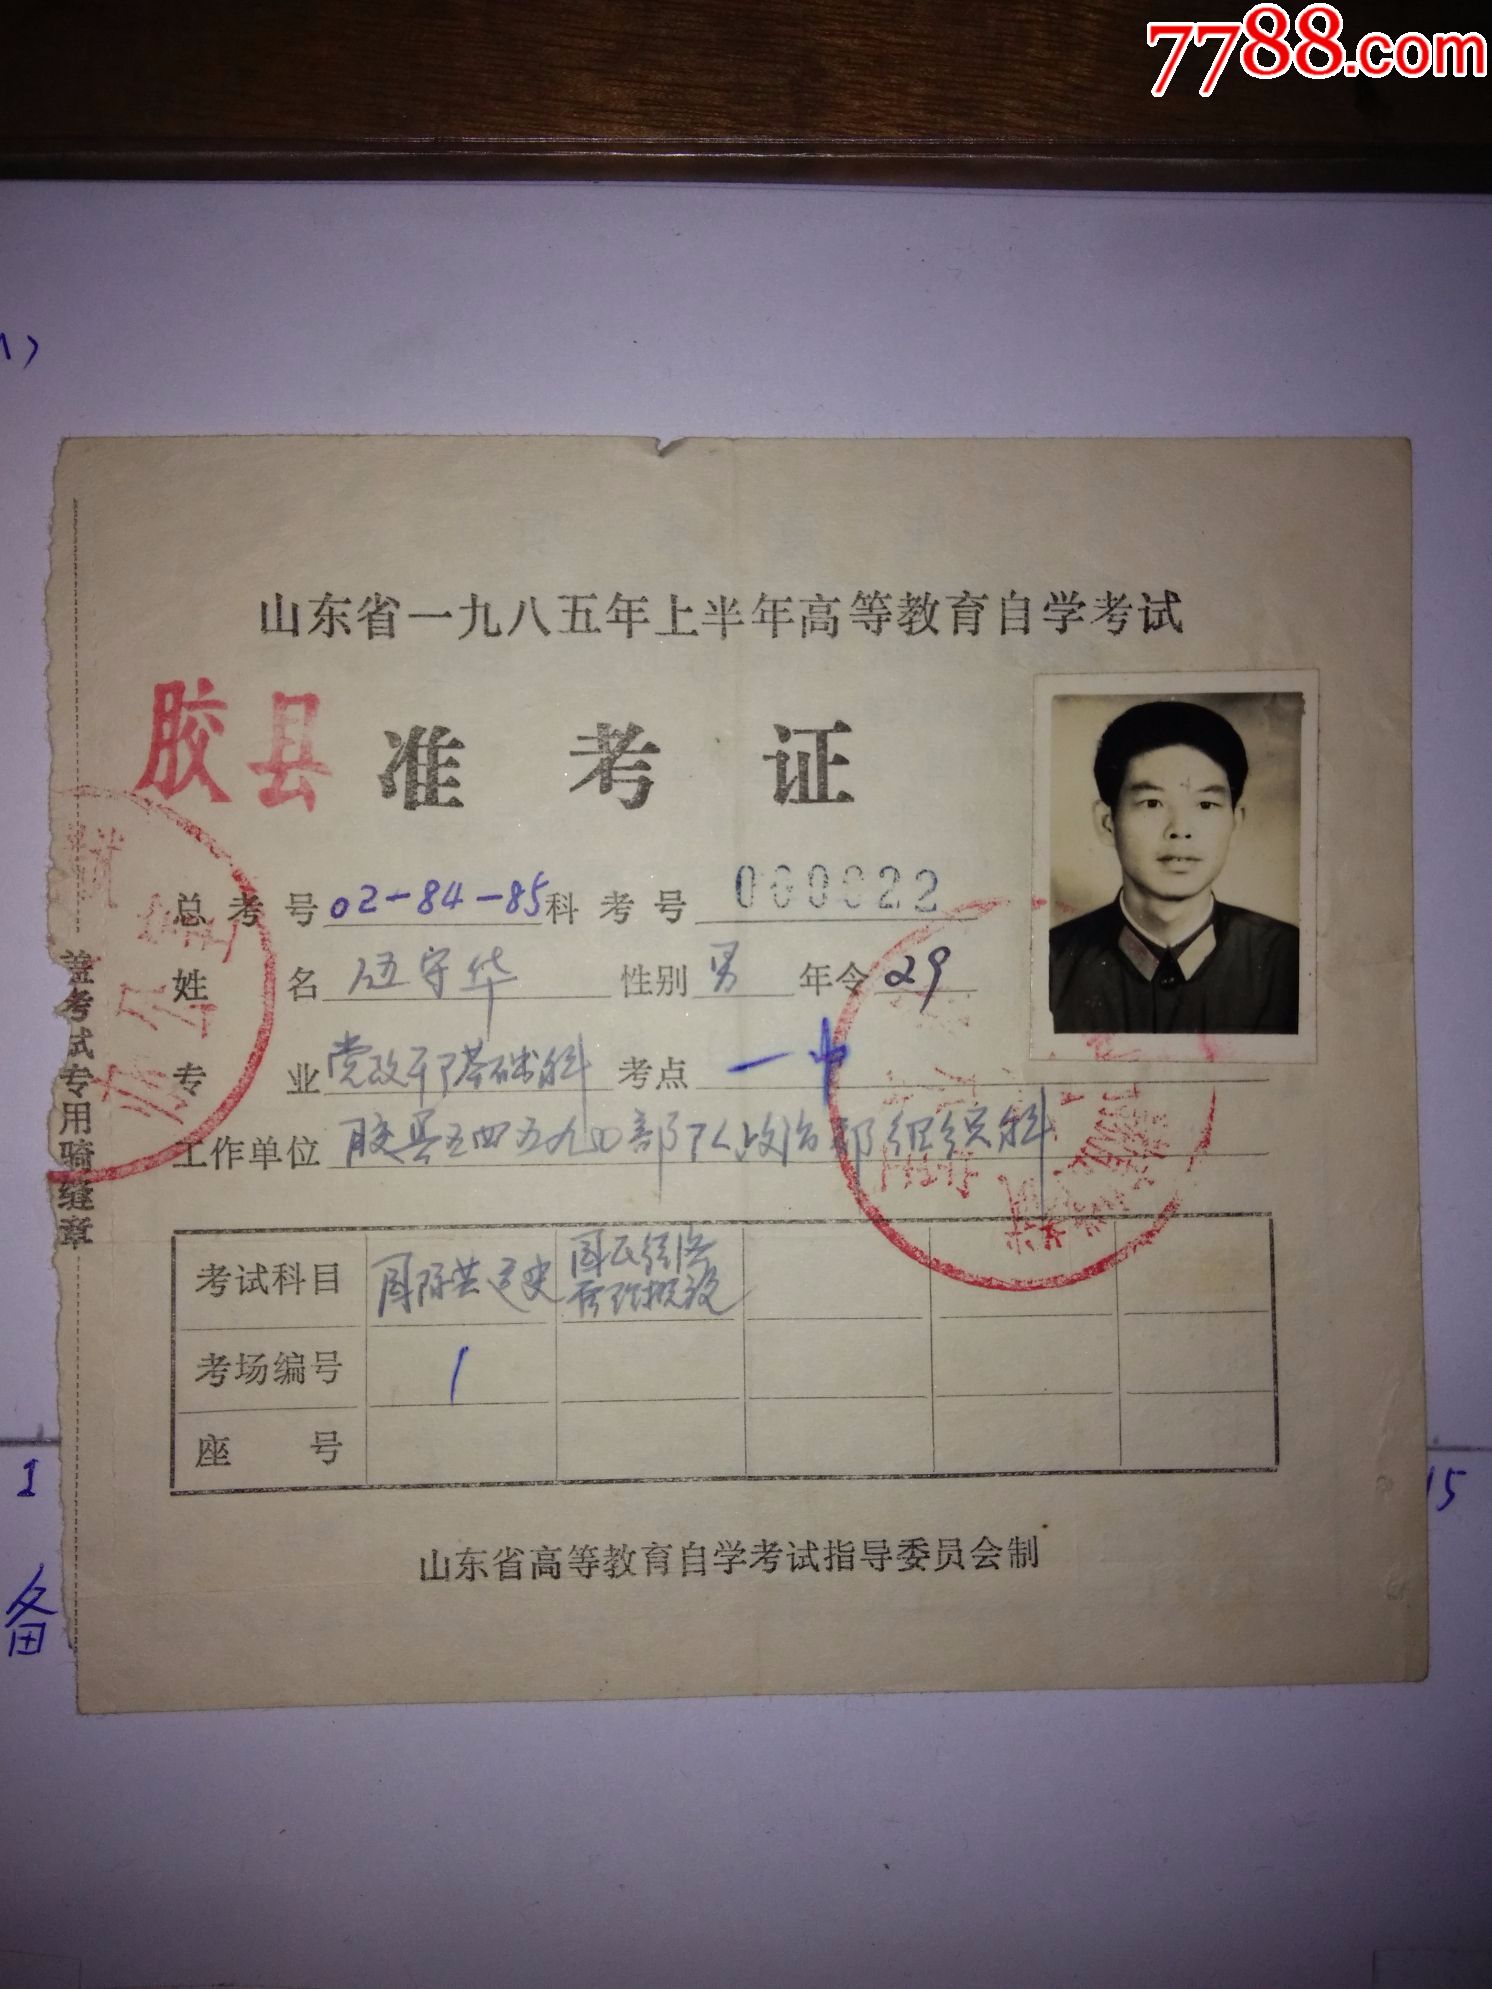 7788.com
山东省一九八五年上半年高等教育自学考试
胶县 准考证
总考号 02-84-85 科考号 000022
姓名 伍守华 性别 男 年令 29
专业 党政干部基础科 考点 一中
工作单位 胶县五四五九〇部队政治部组织科
盖考试专用骑缝章
考试科目 国际共运史 国民经济管理概论
考场编号 1
座号
山东省高等教育自学考试指导委员会制
1
15
备